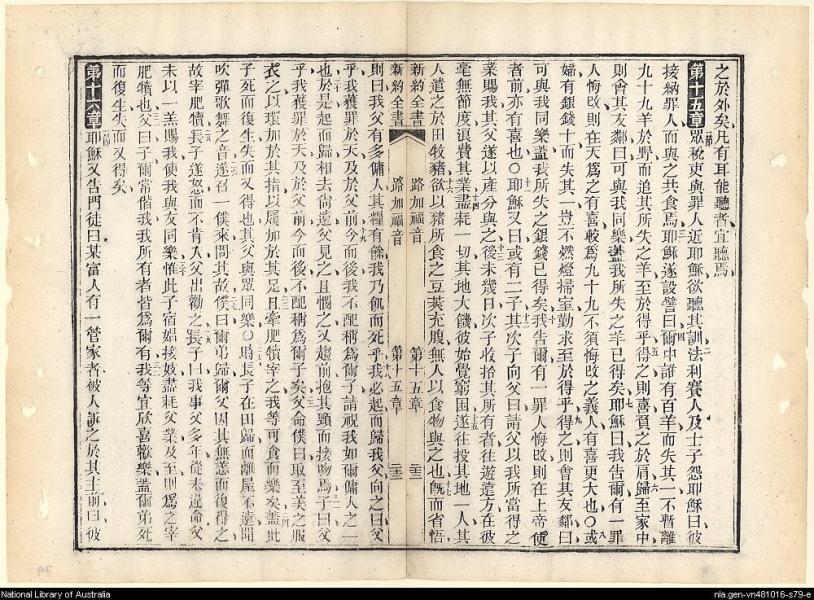 之於外矣凡有耳能聽者宜聽焉
第十五章 一節 眾稅吏與罪人近耶穌欲聽其訓二法利賽人及士子怨耶穌曰彼
接納罪人而與之共食焉三耶穌遂設譬曰四爾中誰有百羊而失其一不暫離
九十九羊於野而追其所失之羊至於得乎五得之則喜負之於肩六歸至家中
則會其友鄰曰可與我同樂蓋我所失之羊已得矣七耶穌曰我告爾有一罪
人悔改則在天為之有喜較為九十九不須悔改之義人有喜更大也〇八或
婦有銀錢十而失其一豈不燃燈掃室勤求至於得乎九得之則會其友鄰曰
可與我同樂蓋我所失之銀錢已得矣十我告爾有一罪人悔改則在上帝使
者前亦有喜也〇十一耶穌又曰或有二子十二其次子向父曰請父以我所當得之
業賜我其父遂以產分與之十三後未幾日次子收拾其所有者往遊遠方在彼
毫無節度浪費其業十四盡耗一切其地大饑彼始覺窮困十五遂往投其地一人其
人遣之於田牧豬十六欲以豬所食之豆莢充腹無人以食物與之也十七既而省悟
新約全書 路加福音 第十五章 三三
新約全書 路加福音 第十五章 三三
則曰我父有多傭人其糧有餘我乃飢而死乎十八我必起而歸我父向之曰父
乎我獲罪於天及於父前十九今而後我不配稱為爾子請視我如爾傭人之一
也二十於是起而歸相去尚遠父見之且憫之又趨前抱其頸而接吻焉二一子曰父
乎我獲罪於天及於父前今而後不配稱為爾子矣二二父命僕曰取至美之服
衣之以環加於其指以屨加於其足二三且牽肥犢宰之我等可食而樂矣二四蓋此
子死而復生失而又得也其父與眾同樂〇二五時長子在田歸而離屋不遠聞
吹彈歌舞之音二六遂召一僕來問其故二七僕曰爾弟歸爾父因其無恙而復得之
故宰肥犢二八長子遂怒而不肯入父出勸之二九長子曰我事父多年從未違命父
未以一羔賜我使我與友同樂三十惟此子宿娼接妓盡耗父業及至則為之宰
肥犢也三一父曰子爾常偕我我所有者皆為爾有三二我等宜欣喜歡樂蓋爾弟死
而復生失而又得矣
第十六章 一節 耶穌又告門徒曰某富人有一管家者被人訴之於其主前曰彼
National Library of Australia
nla.gen-vn481016-s79-e